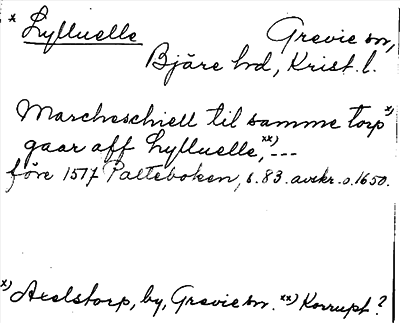 * Lylluelle Grevie sn,
Bjäre hd, Krist. l.
Marcheschiell til samme torp x)
gaar aff Lylluelle, xx) ---
före 1517 Palteboken, s. 83. avskr. o. 1650.
x) Axelstorp, by, Grevie sn. xx) Korrupt?